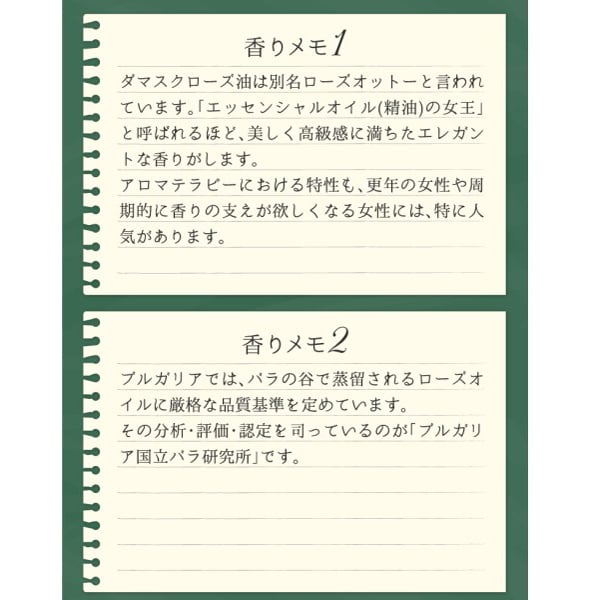 香りメモ1
ダマスクローズ油は別名ローズオットーと言われ
ています。「エッセンシャルオイル(精油)の女王」
と呼ばれるほど、美しく高級感に満ちたエレガン
トな香りがします。
アロマテラピーにおける特性も、更年の女性や周
期的に香りの支えが欲しくなる女性には、特に人
気があります。
香りメモ2
ブルガリアでは、バラの谷で蒸留されるローズオ
イルに厳格な品質基準を定めています。
その分析・評価・認定を司っているのが「ブルガリ
ア国立バラ研究所」です。